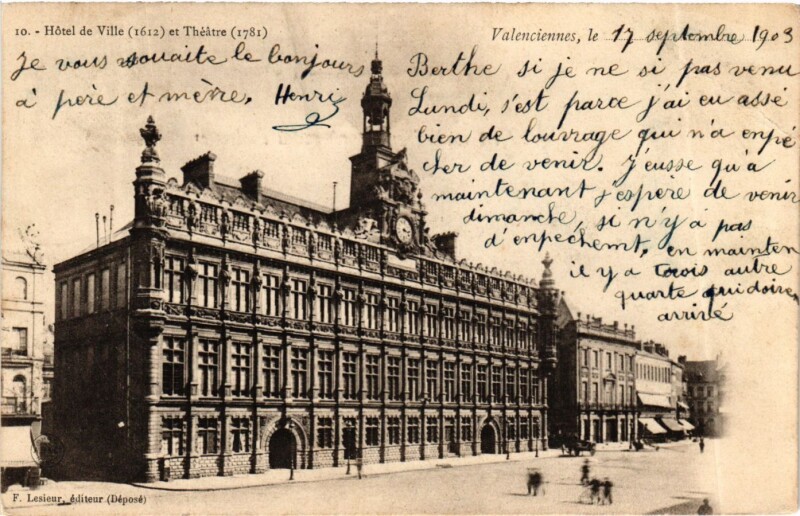 10. - Hôtel de Ville (1612) et Théâtre (1781)
Valenciennes, le 17 septembre 1903
Je vous souaite le bonjours
a' père et mère. Henri
Berthe si je ne si pas venu
Lundi, s'est parce j'ai eu assé
bien de louvrage qui n'a enpé
cher de venir. J'eusse qu'a
maintenant j'espere de venir
dimanche, si n'y a pas
d'enpechemt, en mainten
il y a trois autre
quarte qui doive
arrivé
F. Lesieur, éditeur (Déposé)